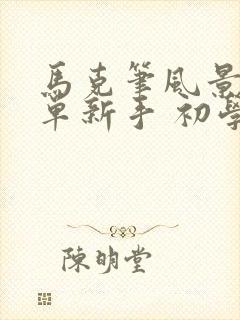 馬克筆風景
單新手 初學
陳明堂